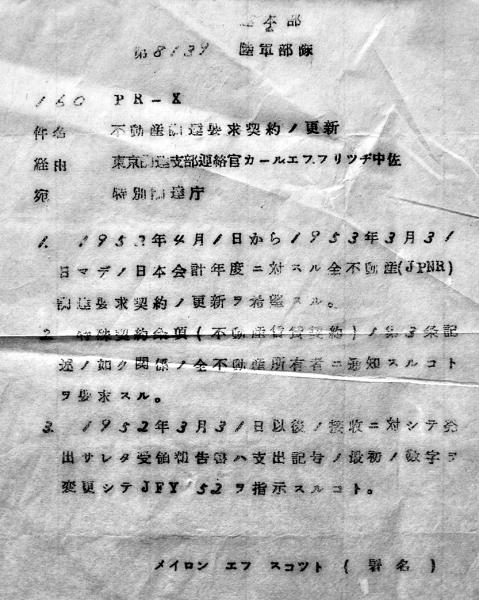 本部
第8139 陸軍部隊
160 PR-X
件名 不動産調達要求契約ノ更新
経由 東京調達支部連絡官カールエフフリツヂ中佐
宛 特別調達庁
1. 1952年4月1日から1953年3月31
日マデノ日本会計年度ニ対スル全不動産(JPNR)
調達要求契約ノ更新ヲ希望スル。
2. 特殊契約条項(不動産賃貸契約)ノ第3条記
述ノ如ク関係ノ全不動産所有者ニ通知スルコト
ヲ要求スル。
3. 1952年3月31日以後ノ接収ニ対シテ発
出サレタ受領報告書ハ支出記号ノ最初ノ数字ヲ
変更シテJFY 52ヲ指示スルコト。
メイロン エフ スコツト (署名)